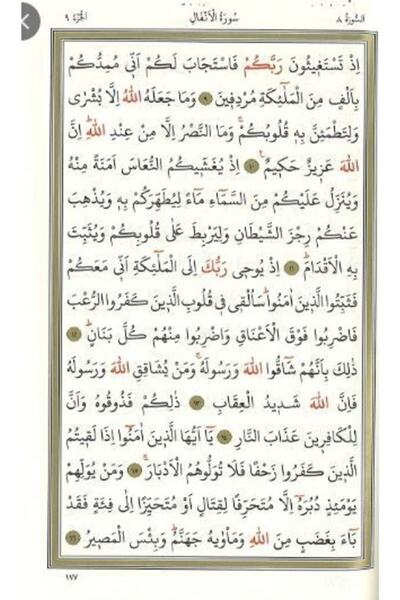 اَلسُّورَةُ ٨ سُورَةُ الْاَنْفَالِ اَلْجُزْءُ ٩
اِذْ تَسْتَغٖيثُونَ رَبَّكُمْ فَاسْتَجَابَ لَكُمْ اَنّٖى مُمِدُّكُمْ
بِاَلْفٍ مِنَ الْمَلٰٓئِكَةِ مُرْدِفٖينَ ﴿٩﴾ وَمَا جَعَلَهُ اللّٰهُ اِلَّا بُشْرٰى
وَلِتَطْمَئِنَّ بِهٖ قُلُوبُكُمْۚ وَمَا النَّصْرُ اِلَّا مِنْ عِنْدِ اللّٰهِؕ اِنَّ
اللّٰهَ عَزٖيزٌ حَكٖيمٌ ﴿١٠﴾ اِذْ يُغَشّٖيكُمُ النُّعَاسَ اَمَنَةً مِنْهُ
وَيُنَزِّلُ عَلَيْكُمْ مِنَ السَّمَٓاءِ مَٓاءً لِيُطَهِّرَكُمْ بِهٖ وَيُذْهِبَ
عَنْكُمْ رِجْزَ الشَّيْطَانِ وَلِيَرْبِطَ عَلٰى قُلُوبِكُمْ وَيُثَبِّتَ
بِهِ الْاَقْدَامَؕ ﴿١١﴾ اِذْ يُوحٖى رَبُّكَ اِلَى الْمَلٰٓئِكَةِ اَنّٖى مَعَكُمْ
فَثَبِّتُوا الَّذٖينَ اٰمَنُواؕ سَاُلْقٖى فٖى قُلُوبِ الَّذٖينَ كَفَرُوا الرُّعْبَ
فَاضْرِبُوا فَوْقَ الْاَعْنَاقِ وَاضْرِبُوا مِنْهُمْ كُلَّ بَنَانٍؕ ﴿١٢﴾
ذٰلِكَ بِاَنَّهُمْ شَٓاقُّوا اللّٰهَ وَرَسُولَهُۚ وَمَنْ يُشَاقِقِ اللّٰهَ وَرَسُولَهُ
فَاِنَّ اللّٰهَ شَدٖيدُ الْعِقَابِ ﴿١٣﴾ ذٰلِكُمْ فَذُوقُوهُ وَاَنَّ
لِلْكَافِرٖينَ عَذَابَ النَّارِ ﴿١٤﴾ يَٓا اَيُّهَا الَّذٖينَ اٰمَنُٓوا اِذَا لَقٖيتُمُ
الَّذٖينَ كَفَرُوا زَحْفًا فَلَا تُوَلُّوهُمُ الْاَدْبَارَۚ ﴿١٥﴾ وَمَنْ يُوَلِّهِمْ
يَوْمَئِذٍ دُبُرَهُٓ اِلَّا مُتَحَرِّفًا لِقِتَالٍ اَوْ مُتَحَيِّزًا اِلٰى فِئَةٍ فَقَدْ
بَٓاءَ بِغَضَبٍ مِنَ اللّٰهِ وَمَاْوٰيهُ جَهَنَّمُؕ وَبِئْسَ الْمَصٖيرُ ﴿١٦﴾
١٧٧